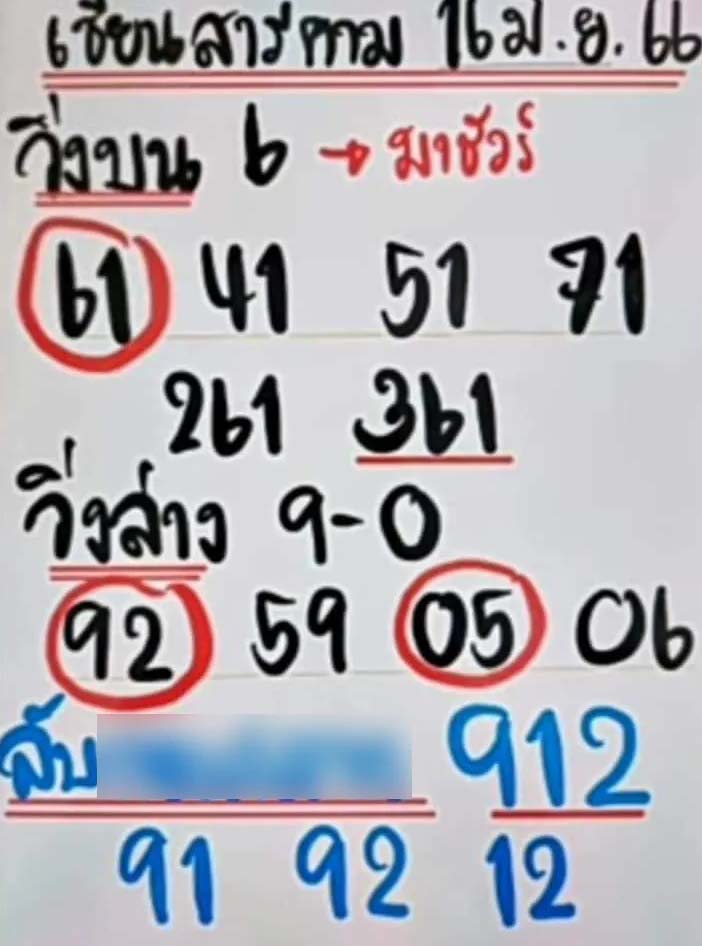 เซียนสารคาม 16 มิ.ย. 66
วิ่งบน 6 → มาชัวร์
61 41 51 71
261 361
วิ่งล่าง 9-0
92 59 05 06
912
91 92 12